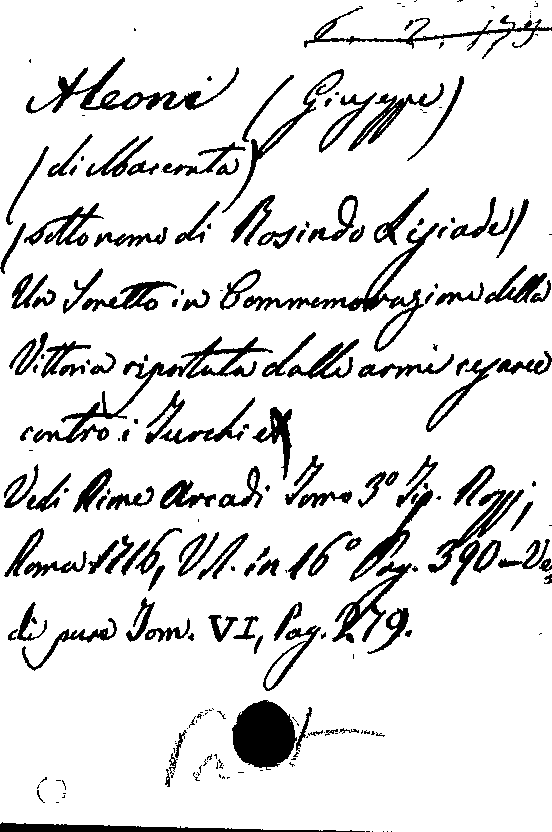 6. 2. 179
Aleoni (Giuseppe)
(di Macerata)
(sotto nome di Rosindo Lisiade)
Un Sonetto in Commemorazione della
Vittoria riportata dalle armi cesaree
contro i Turchi
Vedi Rime Arcadi Tomo 3º Tip. Rossi,
Roma 1716, Vol. in 16º Pag. 390 – Ve
di pure Tom. VI, Pag. 279.